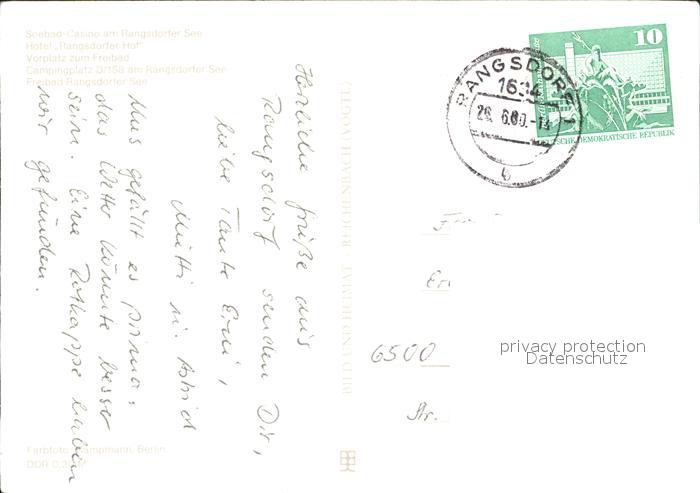 Seebad-Casino am Rangsdorfer See
Hotel „Rangsdorfer Hof"
Vorplatz zum Freibad
Campingplatz D/158 am Rangsdorfer See
Freibad Rangsdorfer See
Herzliche Grüße aus
Rangsdorf senden Dir,
liebe Tante Erni,
Mutti u. Astrid
Uns gefällt es prima.
das Wetter könnte besser
sein. Eine Rotkappe haben
wir gefunden.
Farbfoto: Kampmann, Berlin
DDR
BILD UND HEIMAT REICHENBACH (VOGTL)
RANGSDORF 1
1634
26. 6.80.-14
b
10
DEUTSCHE DEMOKRATISCHE REPUBLIK
6500
Str.
privacy protection
Datenschutz